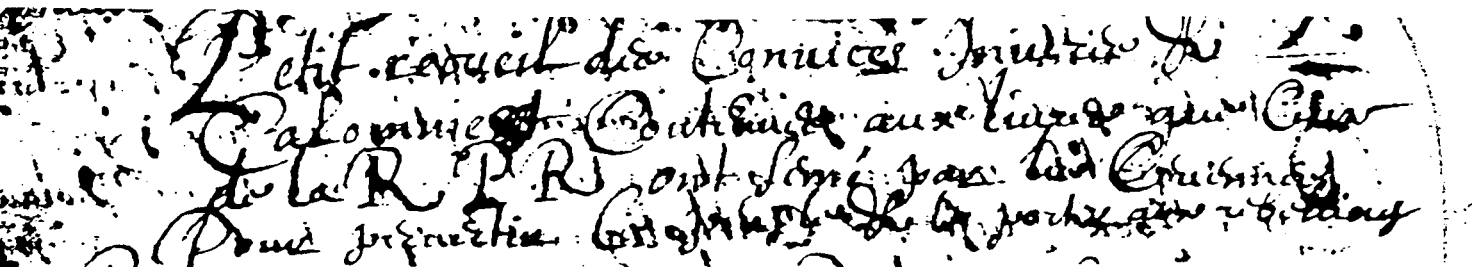 Petit recueil des Convices Iniures &
Calomnies Contenues aux liures que Ceux
de la R P R ont semé par les Prouinces
Pour peruertir les & les porter aux rebellions